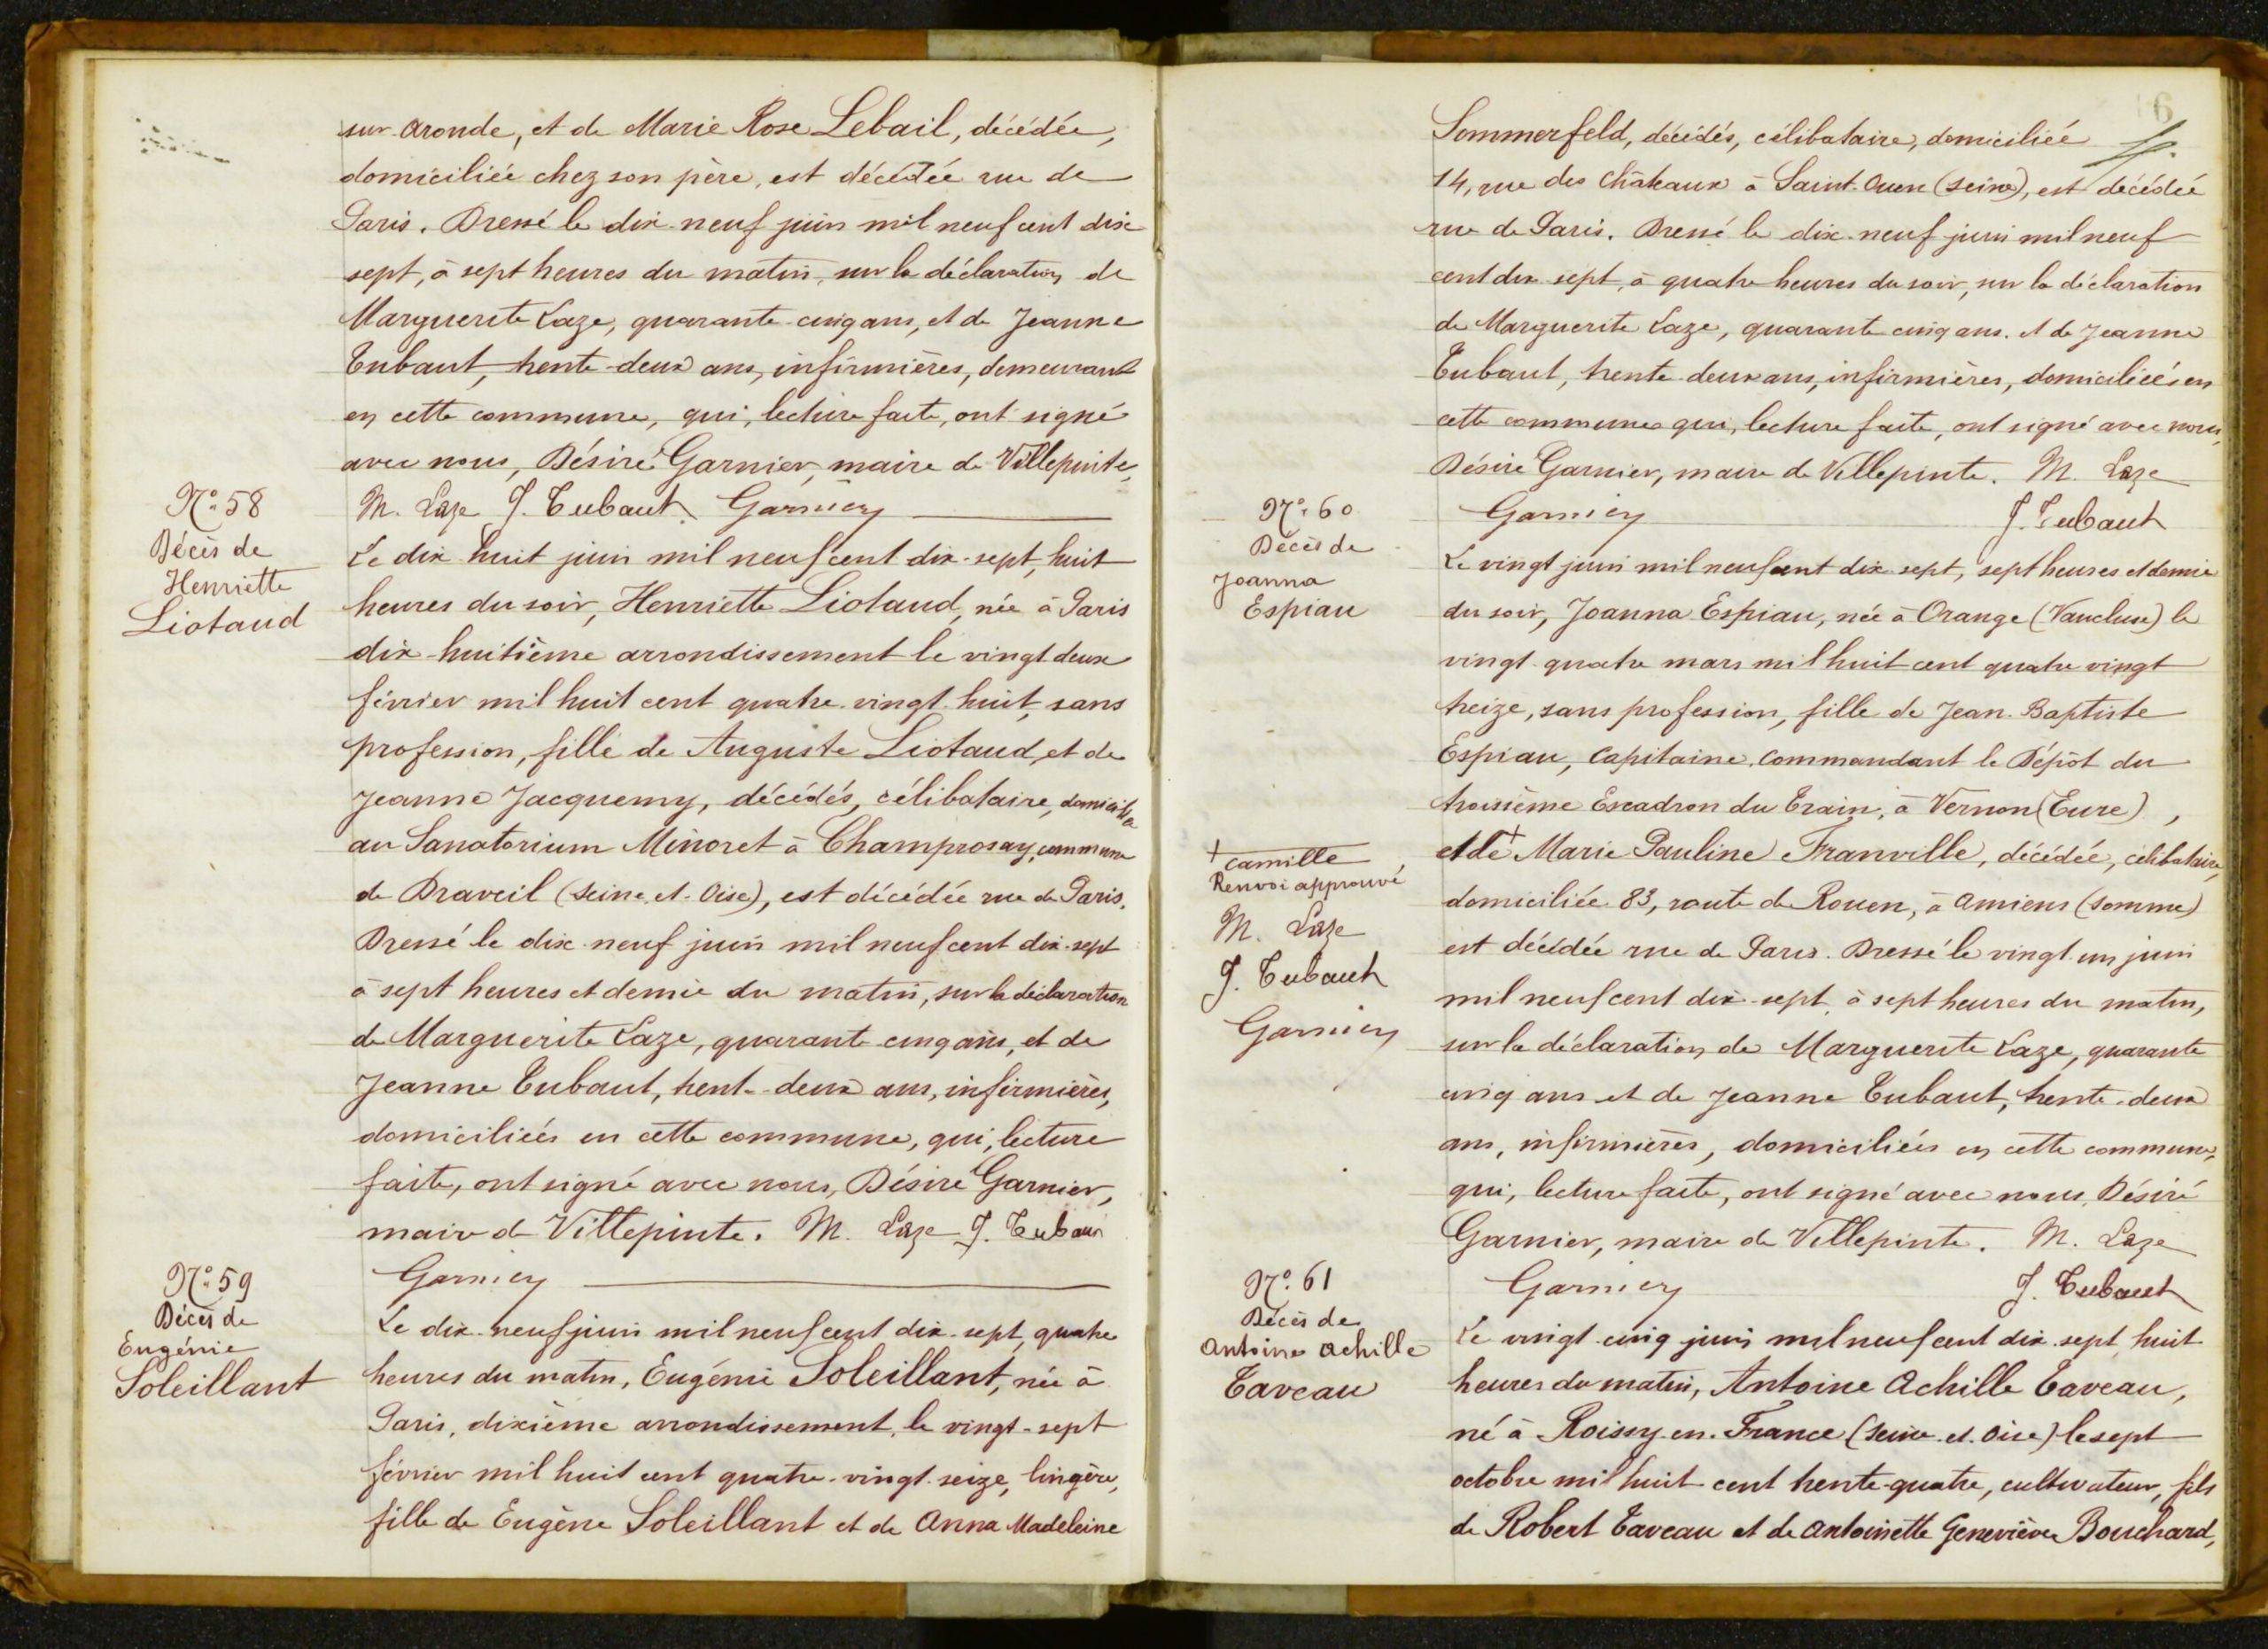 sur-Aronde, et de Marie Rose Lebail, décédée,
domiciliée chez son père, est décédée rue de
Paris. Dressé le dix-neuf juin mil neuf cent dix
sept, à sept heures du matin, sur la déclaration de
Marguerite Laze, quarante-cinq ans, et de Jeanne
Tubaut, trente-deux ans, infirmières, demeurant
en cette commune, qui, lecture faite, ont signé
avec nous, Désiré Garnier, maire de Villepinte,
M. Laze J. Tubaut Garnier
N° 58
Décès de
Henriette
Liotaud
Le dix-huit juin mil neuf cent dix-sept, huit
heures du soir, Henriette Liotaud, née à Paris
dix-huitième arrondissement le vingt deux
février mil huit cent quatre-vingt-huit, sans
profession, fille de Auguste Liotaud, et de
Jeanne Jacquemy, décédés, célibataire, domiciliée
au Sanatorium Minoret à Champrosay, commune
de Draveil (Seine-et-Oise), est décédée rue de Paris.
Dressé le dix-neuf juin mil neuf cent dix-sept
à sept heures et demie du matin, sur la déclaration
de Marguerite Laze, quarante-cinq ans, et de
Jeanne Tubaut, trente-deux ans, infirmières,
domiciliées en cette commune, qui, lecture
faite, ont signé avec nous, Désiré Garnier,
maire de Villepinte. M. Laze J. Tubaut
Garnier
N° 59
Décès de
Eugénie
Soleillant
Le dix-neuf juin mil neuf cent dix-sept, quatre
heures du matin, Eugénie Soleillant, née à
Paris, dixième arrondissement, le vingt-sept
février mil huit cent quatre-vingt-seize, lingère,
fille de Eugène Soleillant et de Anna Madeleine
6
Sommerfeld, décédés, célibataire, domiciliée
14, rue des Châteaux à Saint-Ouen (Seine), est décédée
rue de Paris. Dressé le dix-neuf juin mil neuf
cent dix-sept, à quatre heures du soir, sur la déclaration
de Marguerite Laze, quarante cinq ans. et de Jeanne
Tubaut, trente-deux ans, infirmières, domiciliées en
cette commune qui, lecture faite, ont signé avec nous,
Désiré Garnier, maire de Villepinte. M. Laze
Garnier J. Tubaut
N° 60
Décès de
Joanna
Espiau
Le vingt juin mil neuf cent dix-sept, sept heures et demie
du soir, Joanna Espiau, née à Orange (Vaucluse) le
vingt-quatre mars mil huit cent quatre vingt
treize, sans profession, fille de Jean-Baptiste
Espiau, Capitaine, Commandant le Dépôt du
troisième Escadron du Train, à Vernon (Eure),
et de + Marie Pauline Franville, décédée, célibataire,
domiciliée 83, route de Rouen, à Amiens (Somme)
est décédée rue de Paris. Dressé le vingt-un juin
mil neuf cent dix-sept, à sept heures du matin,
sur la déclaration de Marguerite Laze, quarante
cinq ans et de Jeanne Tubaut, trente-deux
ans, infirmières, domiciliées en cette commune,
qui, lecture faite, ont signé avec nous, Désiré
Garnier, maire de Villepinte. M. Laze
Garnier J. Tubaut
+ Camille
Renvoi approuvé
M. Laze
J. Tubaut
Garnier
N° 61
Décès de
Antoine Achille
Taveau
Le vingt-cinq juin mil neuf cent dix-sept, huit
heures du matin, Antoine Achille Taveau,
né à Roissy-en-France (Seine-et-Oise) le sept
octobre mil huit cent trente-quatre, cultivateur, fils
de Robert Taveau et de Antoinette Geneviève Bouchard,